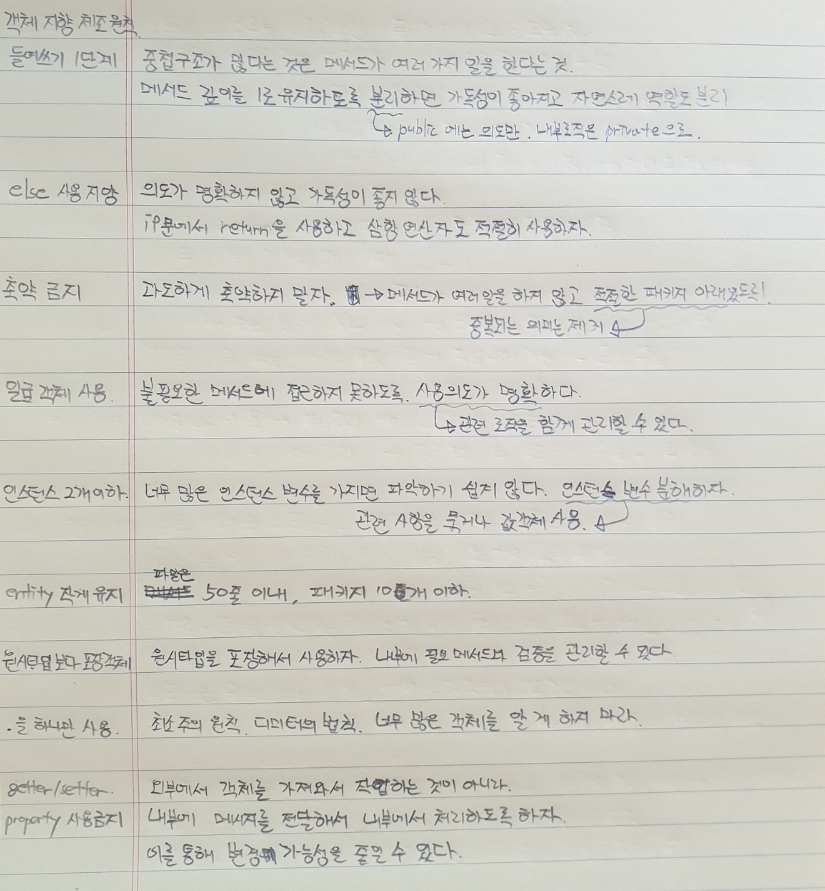 객체 지향 체조 원칙.
들여쓰기 1단계 중첩구조가 많다는 것은 메서드가 여러 가지 일을 한다는 것.
메서드 깊이를 1로 유지하도록 분리하면 가독성이 좋아지고 자연스레 역할도 분리
↳ public 에는 의도만. 내부로직은 private으로.
else 사용 지양 의도가 명확하지 않고 가독성이 좋지 않다.
if문에서 return을 사용하고 삼항 연산자도 적절히 사용하자.
축약 금지 과도하게 축약하지 말자. → 메서드가 여러일을 하지 않고 적절한 패키지 아래 있도록!
중복되는 의미는 제거
일급 객체 사용. 불필요한 메서드에 접근하지 못하도록. 사용의도가 명확하다.
↳ 관련 로직을 함께 관리할 수 있다.
인스턴스 2개이하. 너무 많은 인스턴스 변수를 가지면 파악하기 쉽지 않다. 인스턴스 변수 분해하자.
관련 사항을 묶거나 값객체 사용.
entity 작게 유지 파일은 50줄 이내, 패키지 10개 이하.
원시타입보다 포장객체 원시타입을 포장해서 사용하자. 내부에 필요 메서드와 검증을 관리할 수 있다
.을 하나만 사용. 최소 주의 원칙. 디미터의 법칙. 너무 많은 객체를 알 게 하지 마라.
getter/setter. 외부에서 객체를 가져와서 작업하는 것이 아니라.
property 사용금지 내부에 메시지를 전달해서 내부에서 처리하도록 하자.
이를 통해 변경 가능성을 줄일 수 있다.